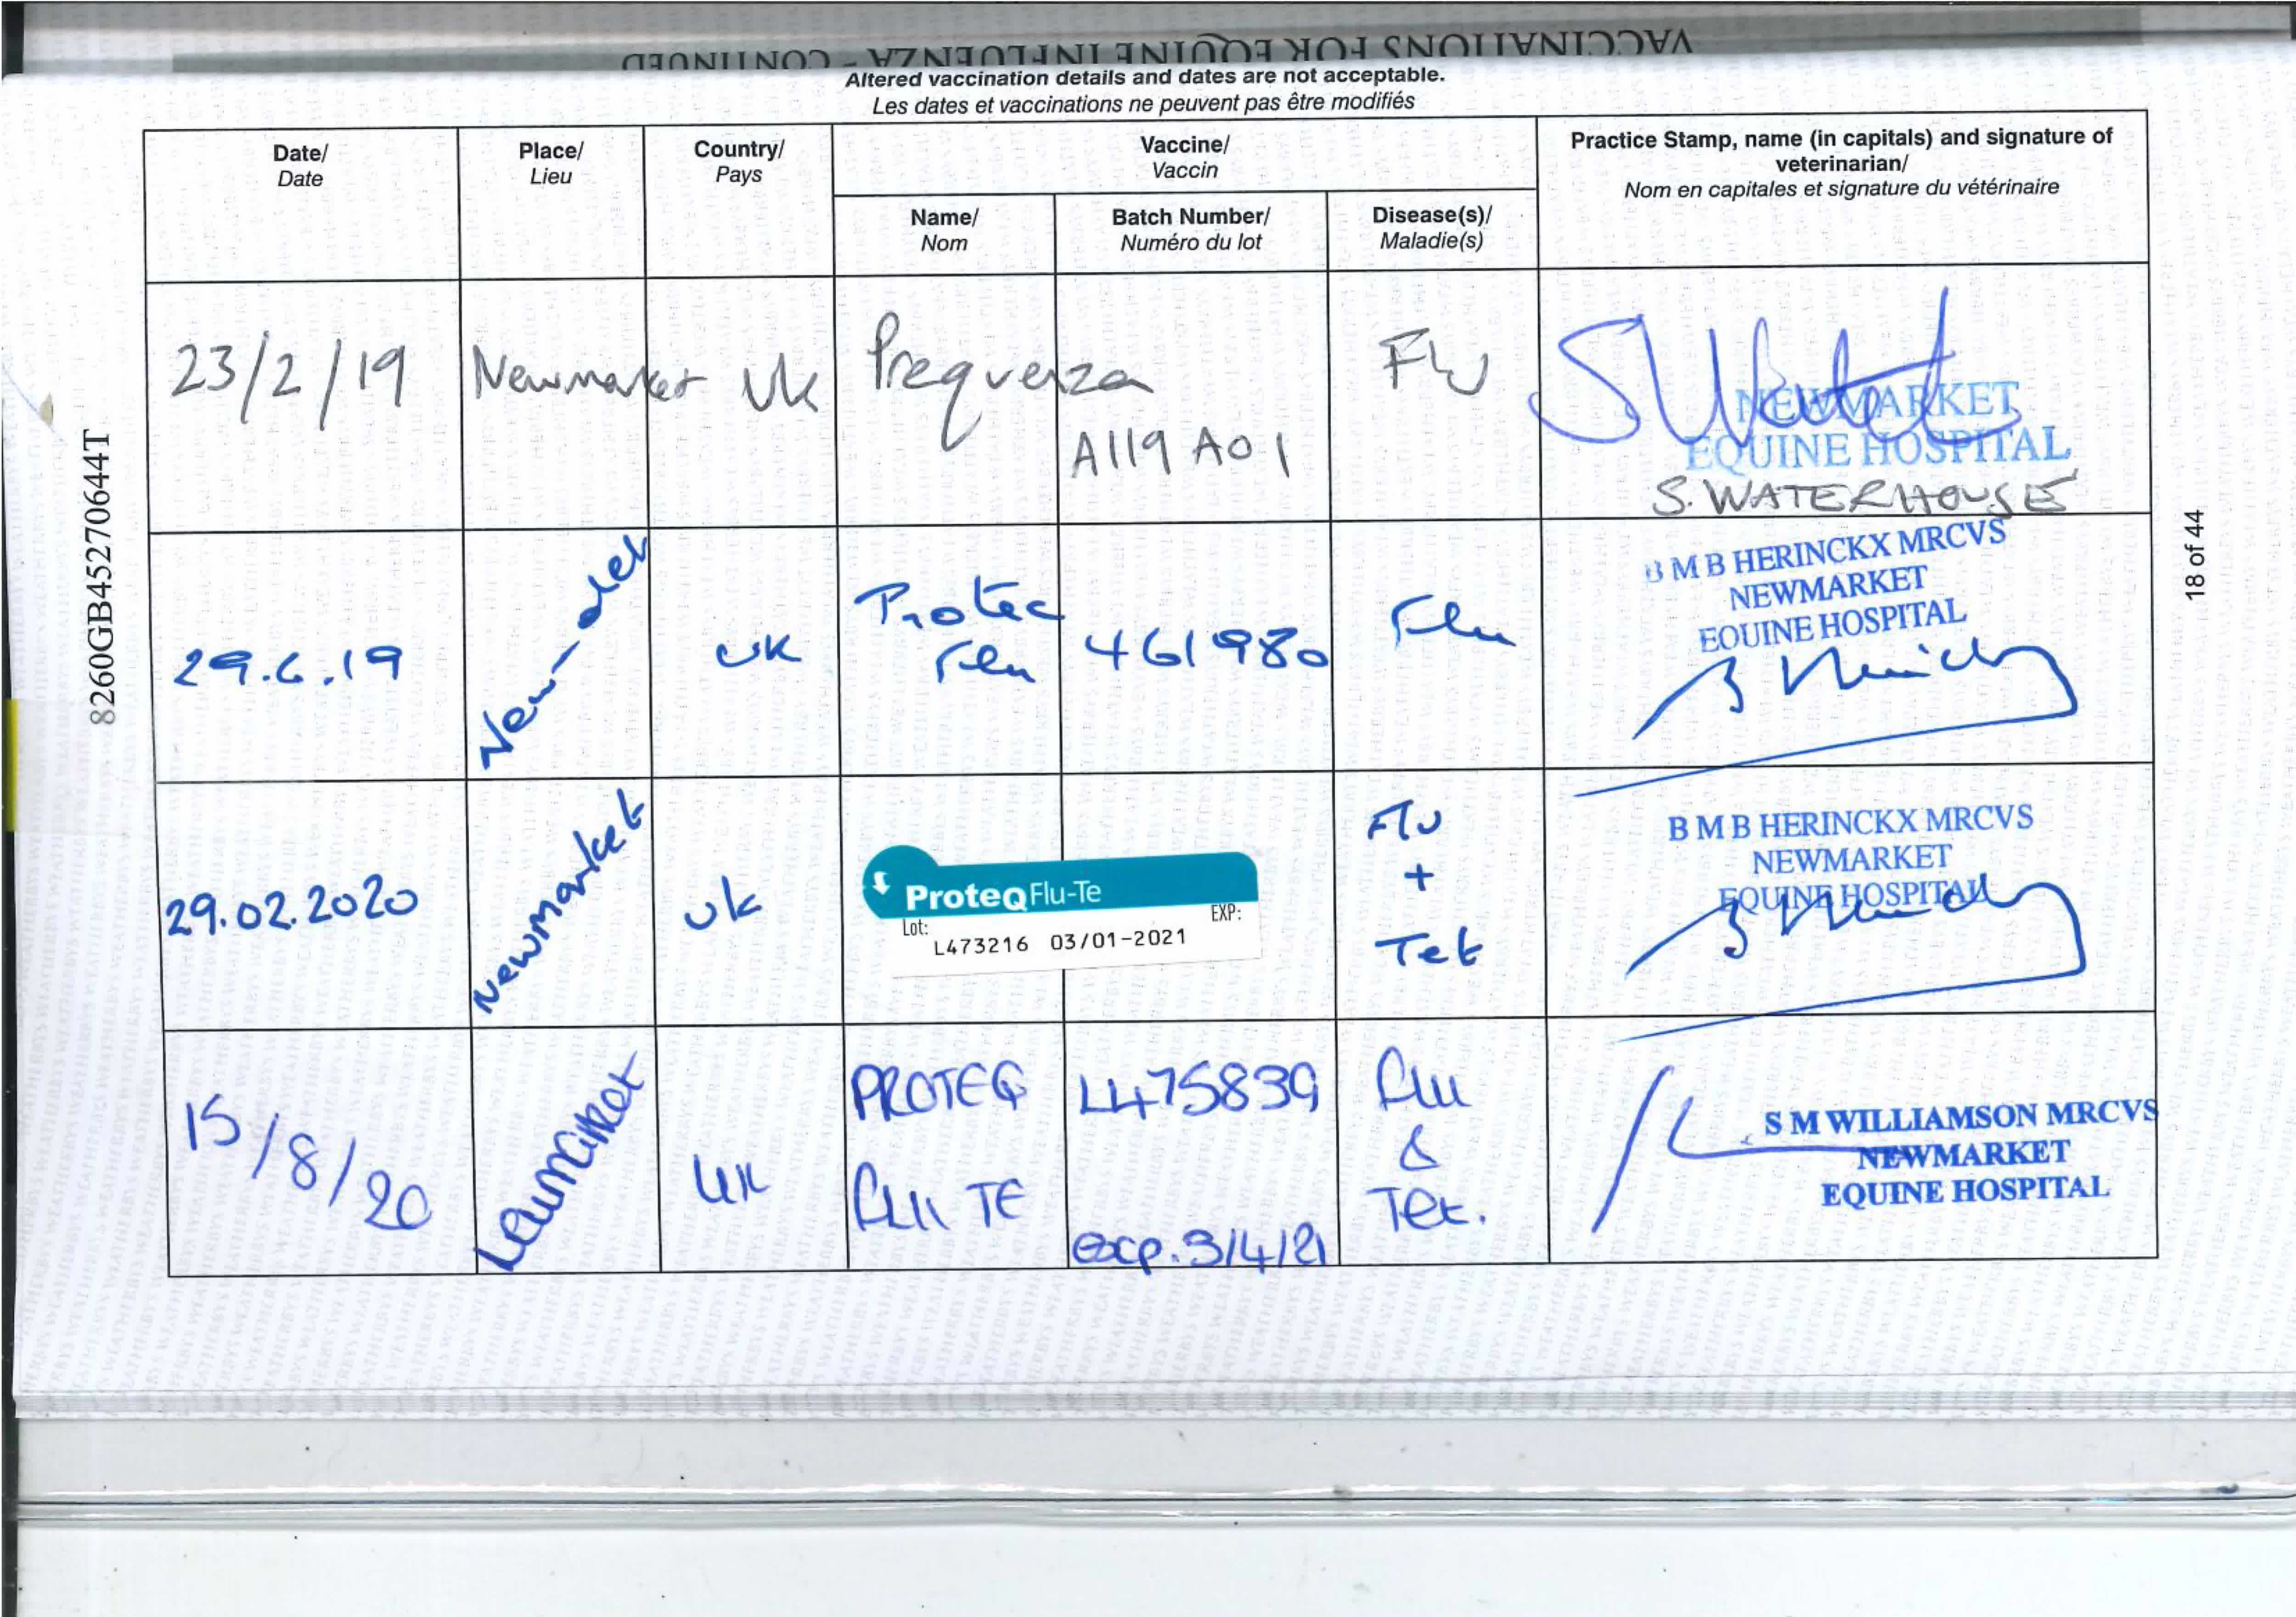 VACCINATIONS FOR EQUINE INFLUENZA - CONTINUED
Altered vaccination details and dates are not acceptable.
Les dates et vaccinations ne peuvent pas être modifiés
Date/
Date
Place/
Lieu
Country/
Pays
Vaccine/
Vaccin
Name/
Nom
Batch Number/
Numéro du lot
Disease(s)/
Maladie(s)
Practice Stamp, name (in capitals) and signature of
veterinarian/
Nom en capitales et signature du vétérinaire
23/2/19
Newmarket
Uk
Prequenza
A119 A01
Flu
NEWMARKET
EQUINE HOSPITAL
S. WATERHOUSE
29.6.19
UK
Protec
Flu
461980
Flu
B M B HERINCKX MRCVS
NEWMARKET
EQUINE HOSPITAL
29.02.2020
Newmarket
Uk
ProteqFlu-Te
Lot:
EXP:
L473216 03/01-2021
Flu
+
Tet
B M B HERINCKX MRCVS
NEWMARKET
EQUINE HOSPITAL
15/8/20
Newmarket
UK
PROTEQ
FLU TE
L475839
exp. 3/4/21
Flu
&
Tet.
S M WILLIAMSON MRCVS
NEWMARKET
EQUINE HOSPITAL
8260GB45270644T
18 of 44